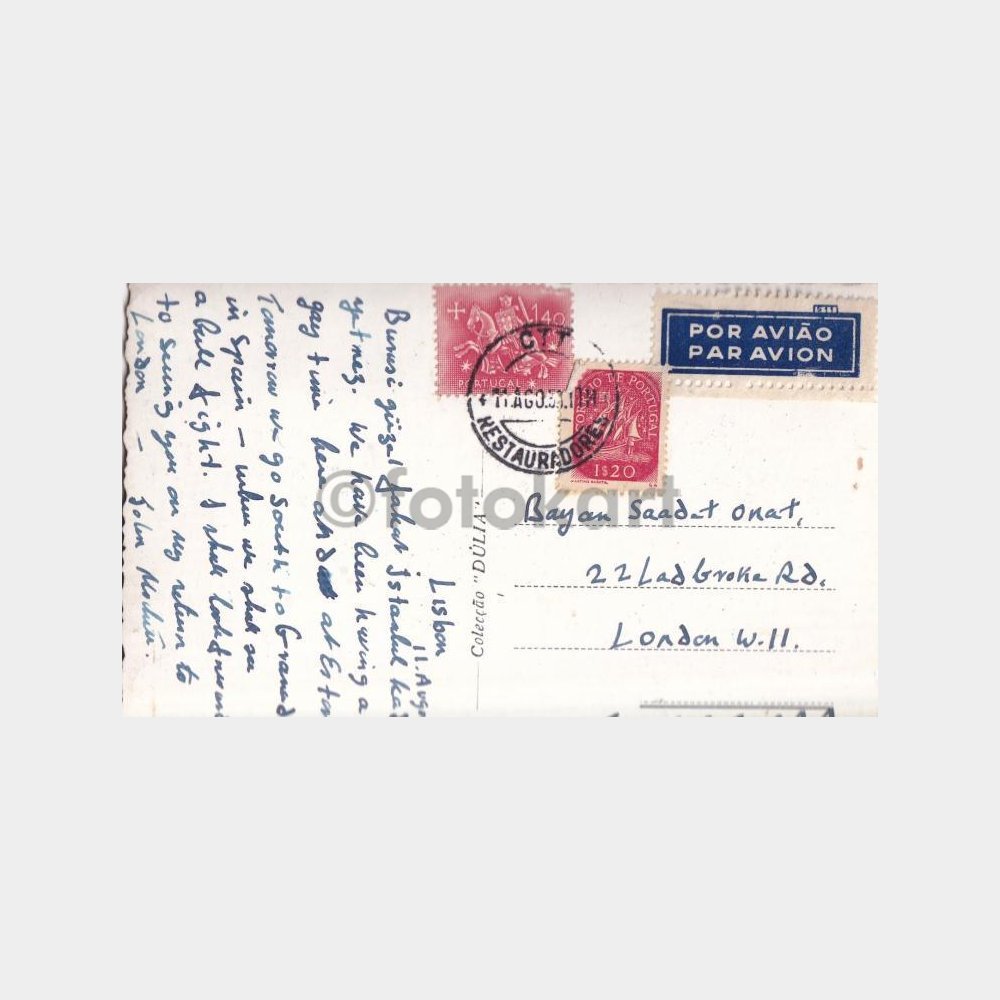 Lisbon
11. Aug
Burası güzel fakat İstanbul ka
yetmez. We have been having a
gay time here and at Esto
Tomorrow we go South to Granad
in Spain – where we shall see
a bull fight. I shall look forward
to seeing you on my return to
London – John
Colecção "DÚLIA"
140
PORTUGAL
CTT
11.AGO.53.17H
RESTAURADORES
DE PORTUGAL
1$20
POR AVIÃO
PAR AVION
Bayan Saadet Onat,
22 Ladbroke Rd.
London W.11.
©fotokart